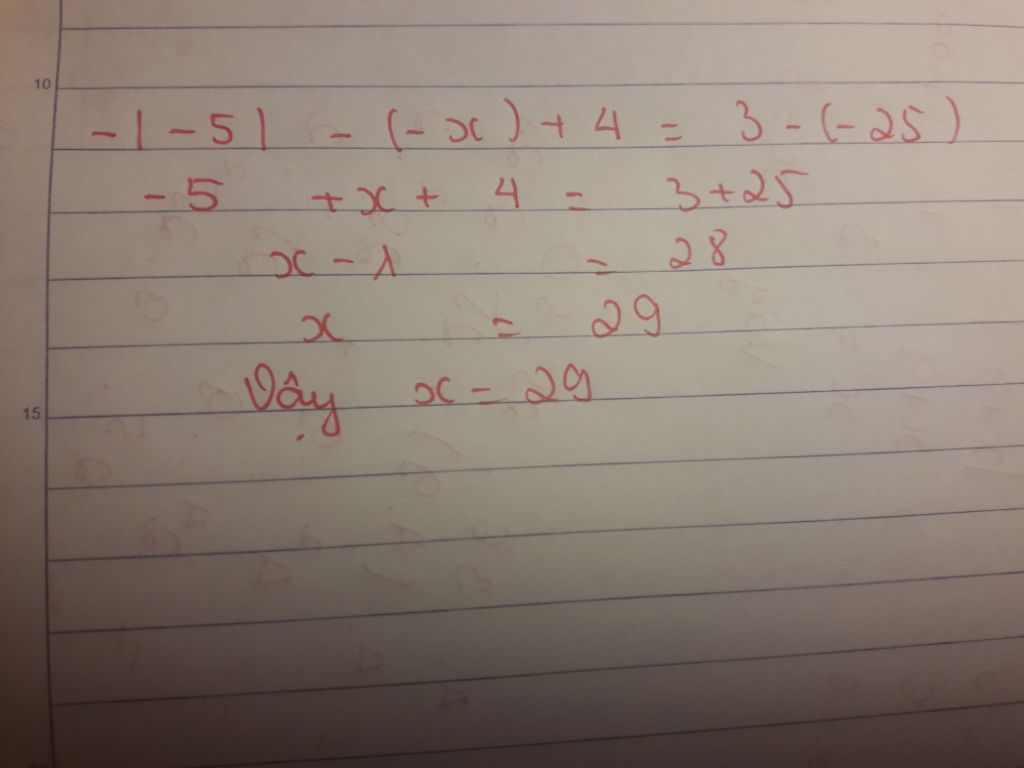 10
-|-5| - (-x) + 4 = 3 - (-25)
-5 + x + 4 = 3 + 25
x - 1 = 28
x = 29
Vậy x = 29
15